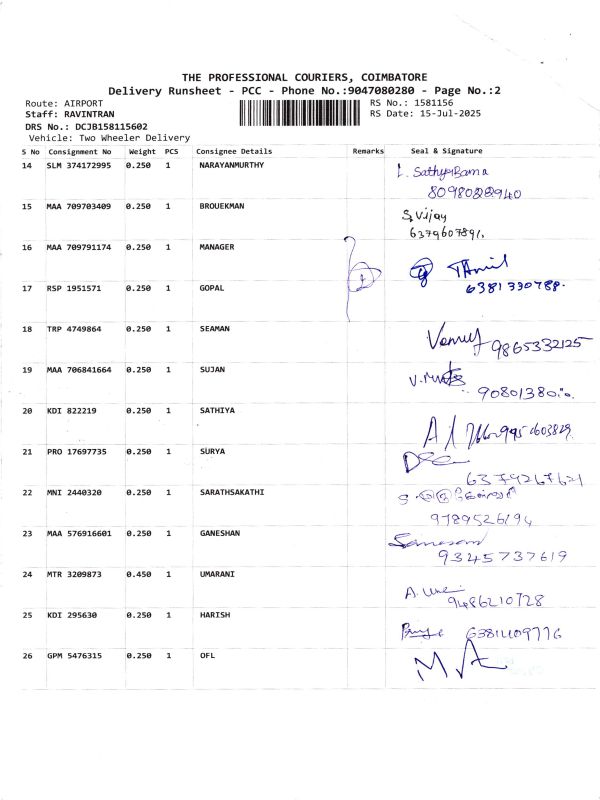 THE PROFESSIONAL COURIERS, COIMBATORE
Delivery Runsheet - PCC - Phone No.:9047080280 - Page No.:2
Route: AIRPORT RS No.: 1581156
Staff: RAVINTRAN RS Date: 15-Jul-2025
DRS No.: DCJB158115602
Vehicle: Two Wheeler Delivery
S No Consignment No Weight PCS Consignee Details Remarks Seal & Signature
14 SLM 374172995 0.250 1 NARAYANMURTHY L. SathyaBama
15 MAA 709703409 0.250 1 BROUEKMAN S. Vijay
6379607891.
16 MAA 709791174 0.250 1 MANAGER
17 RSP 1951571 0.250 1 GOPAL 6381330788.
18 TRP 4749864 0.250 1 SEAMAN
9865332125
19 MAA 706841664 0.250 1 SUJAN
20 KDI 822219 0.250 1 SATHIYA
21 PRO 17697735 0.250 1 SURYA
6379267621
22 MNI 2440320 0.250 1 SARATHSAKATHI
9789526194
23 MAA 576916601 0.250 1 GANESHAN
9345737619
24 MTR 3209873 0.450 1 UMARANI
9486210728
25 KDI 295630 0.250 1 HARISH
6381409776
26 GPM 5476315 0.250 1 OFL